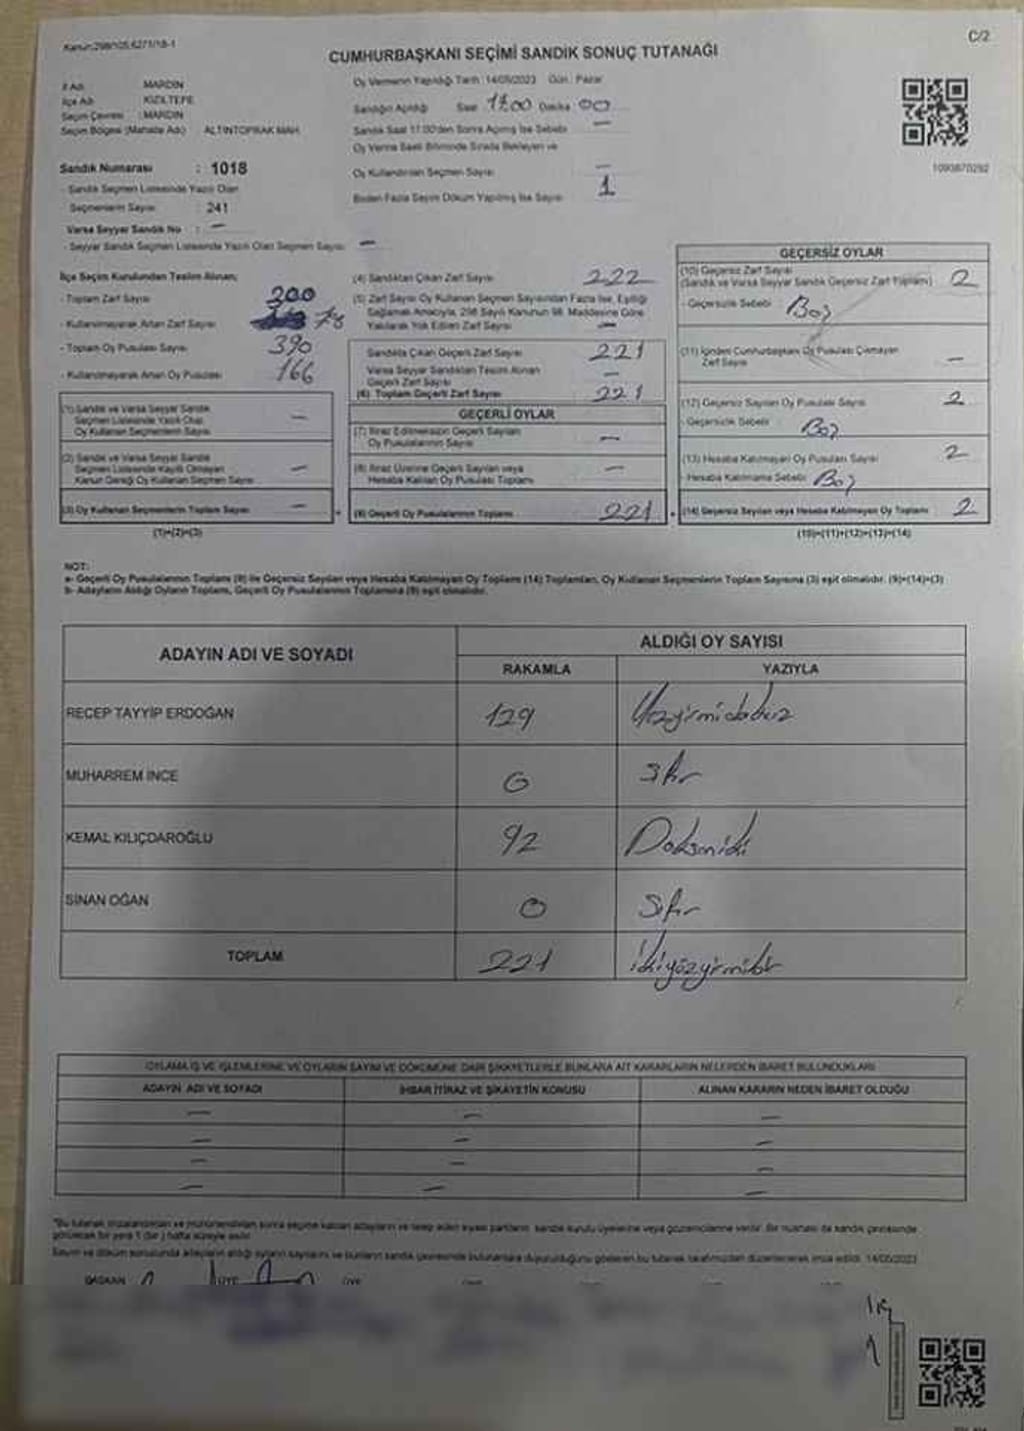 Kanun:298/105,6271/18-1
C/2
CUMHURBAŞKANI SEÇİMİ SANDIK SONUÇ TUTANAĞI
İl Adı : MARDİN
İlçe Adı : KIZILTEPE
Seçim Çevresi : MARDİN
Seçim Bölgesi (Mahalle Adı) ALTINTOPRAK MAH.
Oy Vermenin Yapıldığı Tarih : 14/05/2023 Gün : Pazar
Sandığın Açıldığı Saat 17.00 Dakika 00
Sandık Saat 17:00'den Sonra Açılmış İse Sebebi : —
Oy Verme Saati Bitiminde Sırada Bekleyen ve
Oy Kullandırılan Seçmen Sayısı : —
Birden Fazla Sayım Döküm Yapılmış İse Sayısı : 1
1093870292
Sandık Numarası : 1018
- Sandık Seçmen Listesinde Yazılı Olan
Seçmenlerin Sayısı : 241
Varsa Seyyar Sandık No : —
- Seyyar Sandık Seçmen Listesinde Yazılı Olan Seçmen Sayısı: —
İlçe Seçim Kurulundan Teslim Alınan:
- Toplam Zarf Sayısı : 300
- Kullanılmayarak Artan Zarf Sayısı : 78
- Toplam Oy Pusulası Sayısı : 390
- Kullanılmayarak Artan Oy Pusulası : 166
(1) Sandık ve Varsa Seyyar Sandık
Seçmen Listesinde Yazılı Olup
Oy Kullanan Seçmenlerin Sayısı —
(2) Sandık ve Varsa Seyyar Sandık
Seçmen Listesinde Kayıtlı Olmayan
Kanun Gereği Oy Kullanan Seçmen Sayısı —
(3) Oy Kullanan Seçmenlerin Toplam Sayısı —
(1)+(2)=(3)
(4) Sandıktan Çıkan Zarf Sayısı : 222
(5) Zarf Sayısı Oy Kullanan Seçmen Sayısından Fazla İse, Eşitliği
Sağlamak Amacıyla, 298 Sayılı Kanunun 98. Maddesine Göre
Yakılarak Yok Edilen Zarf Sayısı : —
Sandıkta Çıkan Geçerli Zarf Sayısı : 221
Varsa Seyyar Sandıktan Teslim Alınan
Geçerli Zarf Sayısı : —
(6) Toplam Geçerli Zarf Sayısı : 221
GEÇERLİ OYLAR
(7) İtiraz Edilmeksizin Geçerli Sayılan
Oy Pusulalarının Sayısı —
(8) İtiraz Üzerine Geçerli Sayılan veya
Hesaba Katılan Oy Pusulası Toplamı —
(9) Geçerli Oy Pusulalarının Toplamı 221
GEÇERSİZ OYLAR
(10) Geçersiz Zarf Sayısı
(Sandık ve Varsa Seyyar Sandık Geçersiz Zarf Toplamı) 2
- Geçersizlik Sebebi : Boş
(11) İçinden Cumhurbaşkanı Oy Pusulası Çıkmayan
Zarf Sayısı —
(12) Geçersiz Sayılan Oy Pusulası Sayısı 2
- Geçersizlik Sebebi : Boş
(13) Hesaba Katılmayan Oy Pusulası Sayısı 2
- Hesaba Katılmama Sebebi : Boş
(14) Geçersiz Sayılan veya Hesaba Katılmayan Oy Toplamı 2
(10)+(11)+(12)+(13)=(14)
NOT:
a- Geçerli Oy Pusulalarının Toplamı (9) ile Geçersiz Sayılan veya Hesaba Katılmayan Oy Toplamı (14) Toplamları, Oy Kullanan Seçmenlerin Toplam Sayısına (3) eşit olmalıdır. (9)+(14)=(3)
b- Adayların Aldığı Oyların Toplamı, Geçerli Oy Pusulalarının Toplamına (9) eşit olmalıdır.
ADAYIN ADI VE SOYADI
ALDIĞI OY SAYISI
RAKAMLA YAZIYLA
RECEP TAYYİP ERDOĞAN 129 Yüzyirmidokuz
MUHARREM İNCE 0 Sıfır
KEMAL KILIÇDAROĞLU 92 Doksaniki
SİNAN OĞAN 0 Sıfır
TOPLAM 221 ikiyüzyirmibir
OYLAMA İŞ VE İŞLEMLERİNE VE OYLARIN SAYIM VE DÖKÜMÜNE DAİR ŞİKAYETLERLE BUNLARA AİT KARARLARIN NELERDEN İBARET BULUNDUKLARI
ADAYIN ADI VE SOYADI İHBAR İTİRAZ VE ŞİKAYETİN KONUSU ALINAN KARARIN NEDEN İBARET OLDUĞU
— — —
— — —
— — —
— — —
"Bu tutanak imzalandıktan ve mühürlendikten sonra seçime katılan adayların ve talep eden siyasi partilerin sandık kurulu üyelerine veya gözlemcilerine verilir. Bir nüshası da sandık çevresinde
görülecek bir yere 1 (bir) hafta süreyle asılır.
Sayım ve döküm sonucunda adayların aldığı oyların sayılarını ve bunların sandık çevresinde bulunanlara duyurulduğunu gösteren bu tutanak tarafımızdan düzenlenerek imza edildi. 14/05/2023
BAŞKAN ÜYE ÜYE